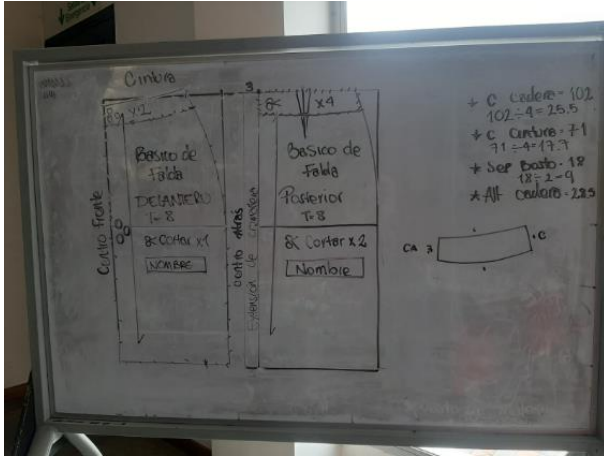 Cintura
x2
Basico de
falda
DELANTERO
T- 8
Cortar x1
NOMBRE
Centro frente
3
x4
Basico de
falda
Posterior
T- 8
Cortar x2
Nombre
Centro atras
C cadera = 102
102 ÷ 4 = 25.5
C Cintura = 71
71 ÷ 4 = 17.7
Sep Busto = 18
18 ÷ 2 = 9
Alt cadera =
CA 3
C